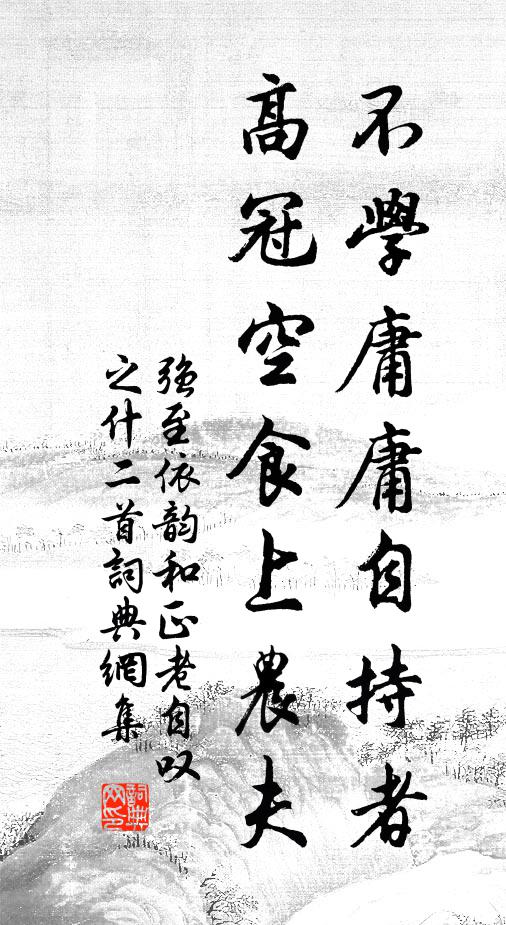 不學庸庸自持者
高冠空食上農夫
強至依韵和正老自叹
之什二首詞典網集